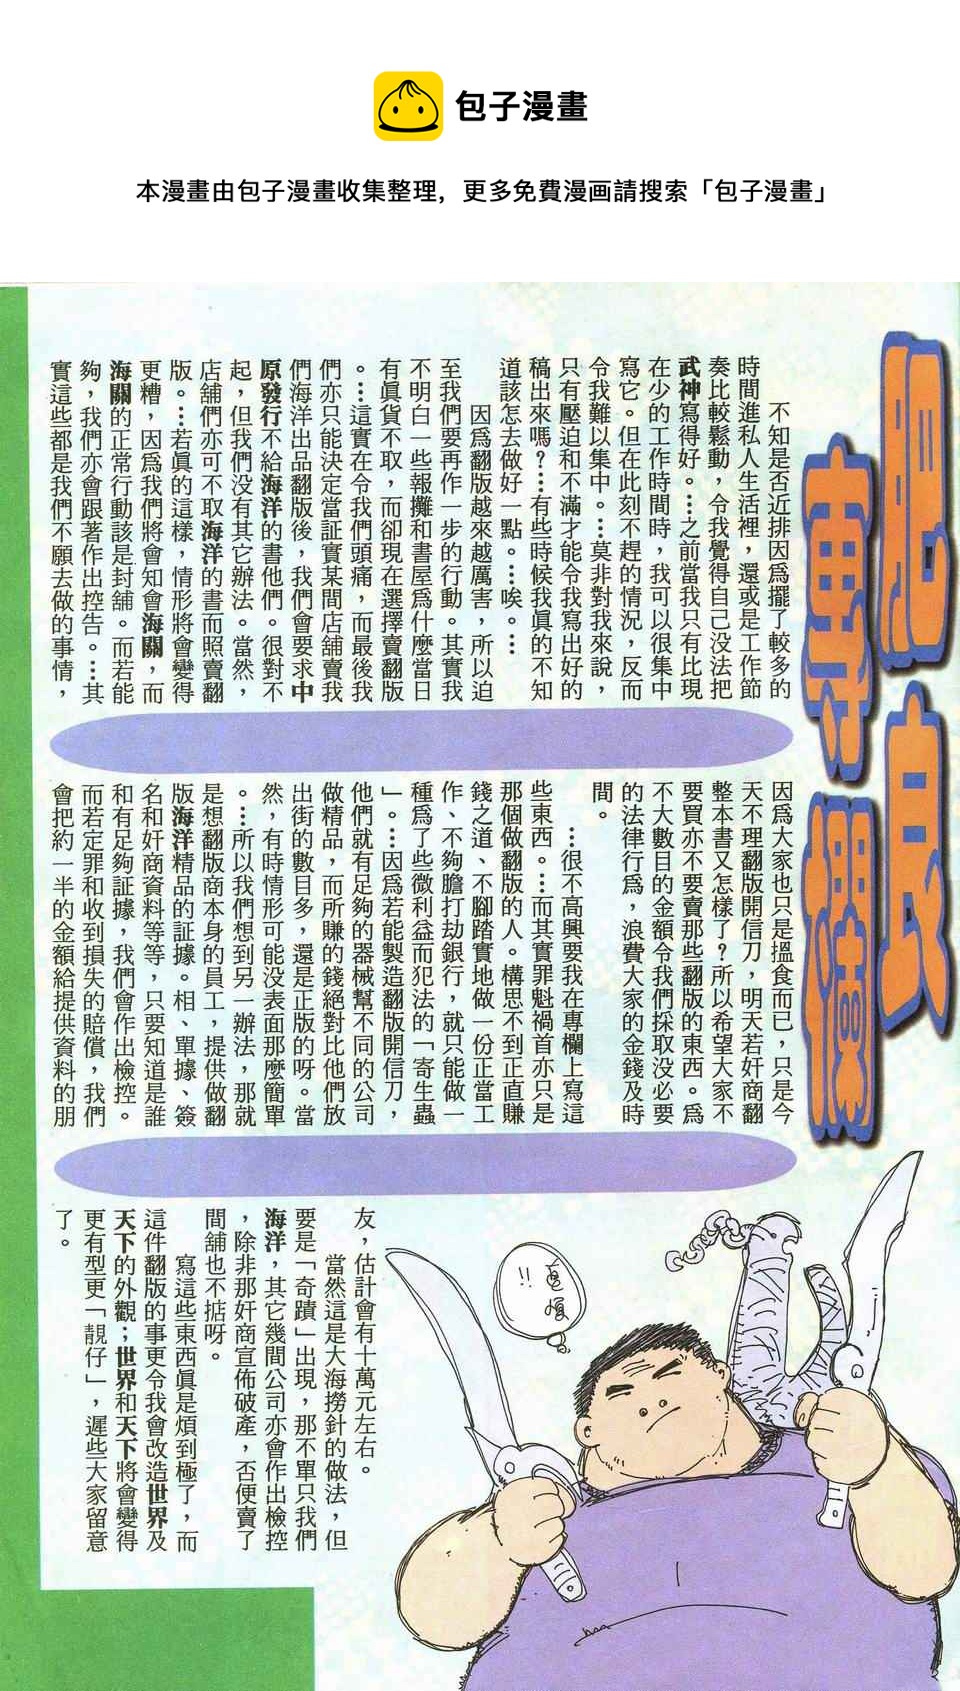 包子漫畫
本漫畫由包子漫畫收集整理，更多免費漫画請搜索「包子漫畫」
肥良
專欄
不知是否近排因為擺了較多的
時間進私人生活裡，還或是工作節
奏比較鬆動，令我覺得自己没法把
武神寫得好。…之前當我只有比現
在少的工作時間時，我可以很集中
寫它。但在此刻不趕的情況，反而
令我難以集中。…莫非對我來說，
只有壓迫和不滿才能令我寫出好的
稿出來嗎？…有些時候我真的不知
道該怎去做好一點。…唉。…
因為翻版越來越厲害，所以迫
至我們要再作一步的行動。其實我
不明白一些報攤和書屋為什麼當日
有真貨不取，而卻現在選擇賣翻版
。…這實在令我們頭痛，而最後我
們亦只能決定當証實某間店舖賣我
們海洋出品翻版後，我們會要求中
原發行不給海洋的書他們。很對不
起，但我們没有其它辦法。當然，
店舖們亦可不取海洋的書而照賣翻
版。…若真的這樣，情形將會變得
更糟，因為我們將會知會海關，而
海關的正常行動該是封舖。而若能
夠，我們亦會跟著作出控告。…其
實這些都是我們不願去做的事情，
因為大家也只是搵食而已，只是今
天不理翻版開信刀，明天若奸商翻
整本書又怎樣了？所以希望大家不
要買亦不要賣那些翻版的東西。為
不大數目的金額令我們採取没必要
的法律行為，浪費大家的金錢及時
間。
…很不高興要我在專欄上寫這
些東西。…而其實罪魁禍首亦只是
那個做翻版的人。構思不到正直賺
錢之道、不腳踏實地做一份正當工
作、不夠膽打劫銀行，就只能做一
種為了些微利益而犯法的「寄生蟲
」。…因為若能製造翻版開信刀，
他們就有足夠的器械幫不同的公司
做精品，而所賺的錢絕對比他們放
出街的數目多，還是正版的呀。當
然，有時情形可能没表面那麼簡單
。…所以我們想到另一辦法，那就
是想翻版商本身的員工，提供做翻
版海洋精品的証據。相、單據、簽
名和奸商資料等等，只要知道是誰
和有足夠証據，我們會作出檢控。
而若定罪和收到損失的賠償，我們
會把約一半的金額給提供資料的朋
友，估計會有十萬元左右。
當然這是大海撈針的做法，但
要是「奇蹟」出現，那不單只我們
海洋，其它幾間公司亦會作出檢控
，除非那奸商宣佈破產，否便賣了
間舖也不掂呀。
寫這些東西真是煩到極了，而
這件翻版的事更令我會改造世界及
天下的外觀；世界和天下將會變得
更有型更「靚仔」，遲些大家留意
了。
!!